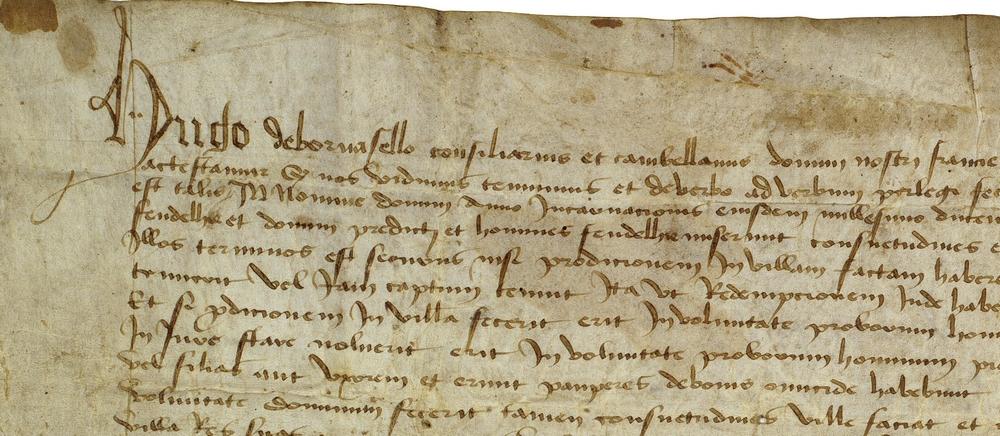 Hugo debornasello consiliarius et cambellanus domini nostri francie
actestamur Quod nos vidimus tenuimus et deverbo adverbum perlegi
est talis In Nomine domini Anno Incarnacionis eiusdem millesimo
fendelhe et domini predicti et homines fendelhe miserunt consuetudines
Illos terminos est securus nisi prodicionem In villam factam
vel Iram captum tenuit Ita Vt Redempcionem Inde
Et si pdicionem In villa fecerit erit In voluntate proborum
In Iure stare noluerit erit In voluntate proborum hominum
vel filias aut Vxorem et erunt pauperes debonis omicide habebunt
voluntate dominium fecerit tamen consuetudines ville faciat et
villa